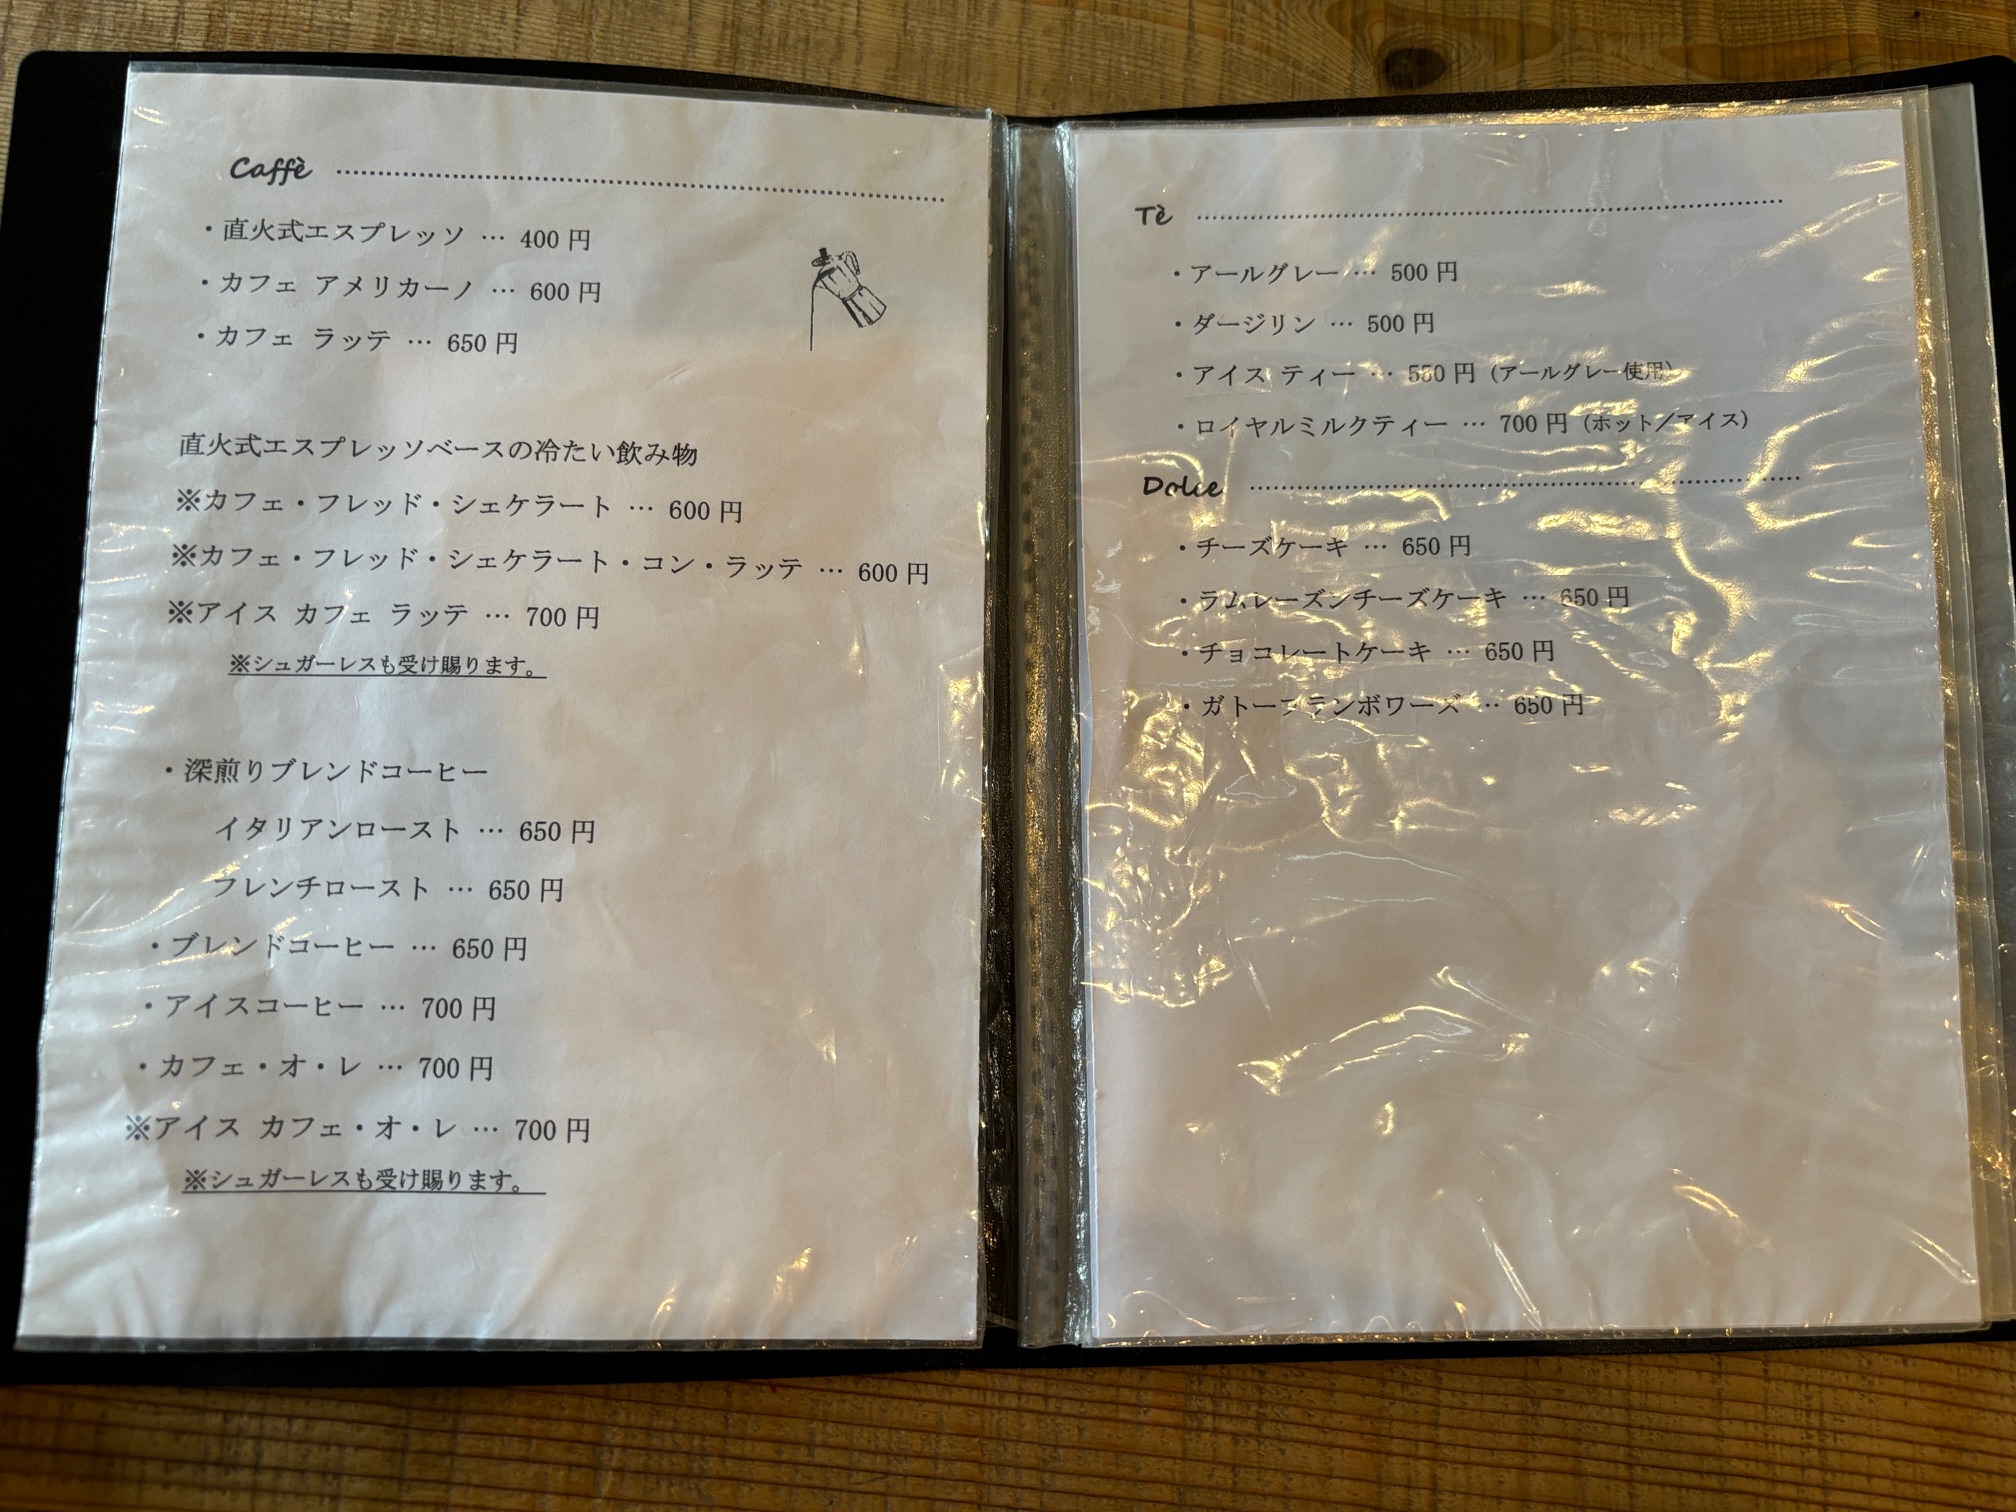 Caffè
・直火式エスプレッソ … 400 円
・カフェ アメリカーノ … 600 円
・カフェ ラッテ … 650 円
直火式エスプレッソベースの冷たい飲み物
※カフェ・フレッド・シェケラート … 600 円
※カフェ・フレッド・シェケラート・コン・ラッテ … 600 円
※アイス カフェ ラッテ … 700 円
※シュガーレスも受け賜ります。
・深煎りブレンドコーヒー
イタリアンロースト … 650 円
フレンチロースト … 650 円
・ブレンドコーヒー … 650 円
・アイスコーヒー … 700 円
・カフェ・オ・レ … 700 円
※アイス カフェ・オ・レ … 700 円
※シュガーレスも受け賜ります。
Tè
・アールグレー … 500 円
・ダージリン … 500 円
・アイス ティー … 円（アールグレー使用）
・ロイヤルミルクティー … 700 円（ホット／アイス）
Dolce
・チーズケーキ … 650 円
・ラムレーズンチーズケーキ … 650 円
・チョコレートケーキ … 650 円
・ガトーフランボワーズ … 650 円